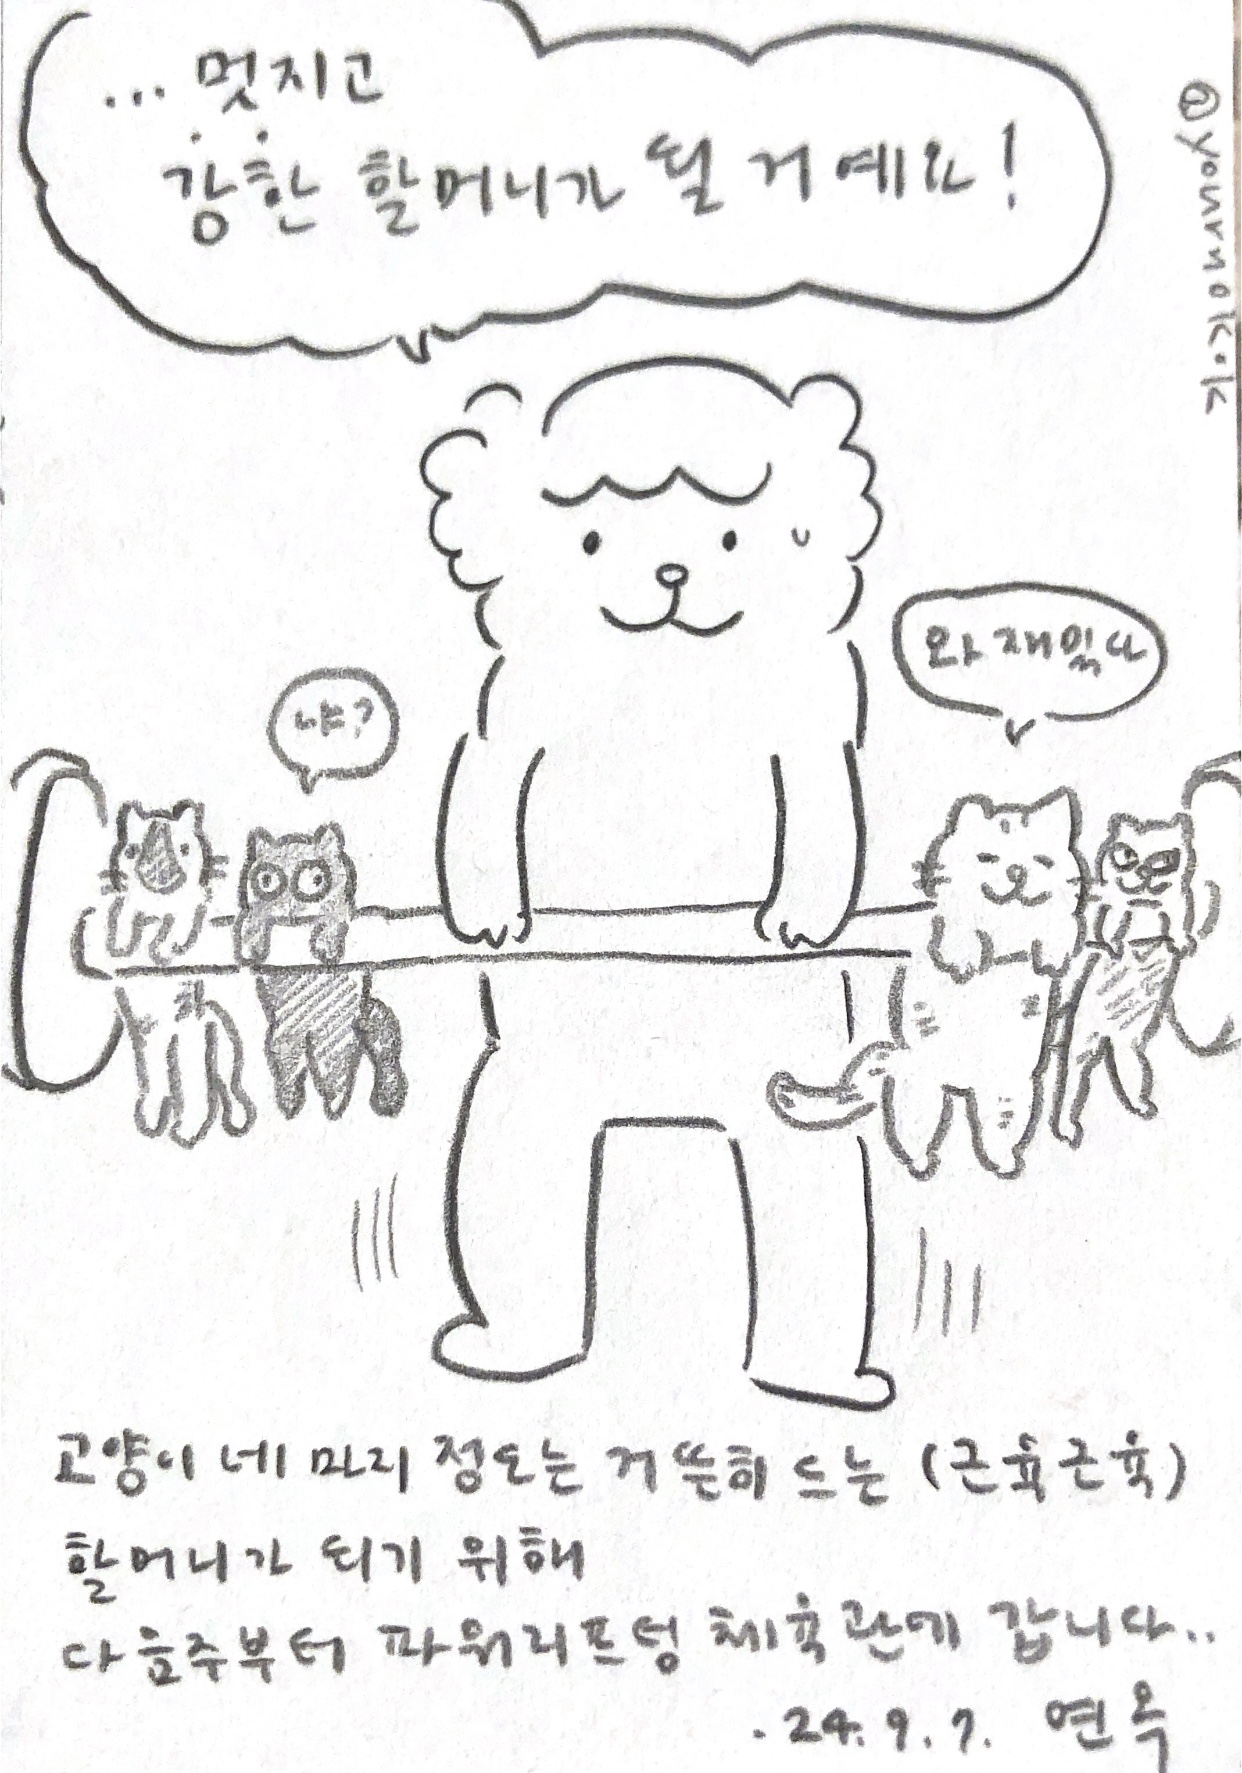 ...멋지고
강한 할머니가 될 거예요!
@yournokok
냐?
와 재밌다
고양이 네 마리 정도는 거뜬히 드는 (근육근육)
할머니가 되기 위해
다음주부터 파워리프텅 체육관에 갑니다..
.24.9.7. 연옥